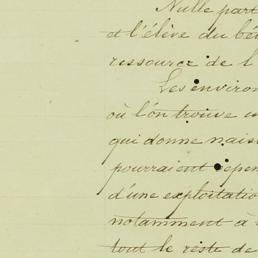 Nulle part
et l'élève du bé
ressource de l'
Les environ
où l'on trouve
qui donne nais
pourraient
d'une exploitatio
notamment à
tout le reste de